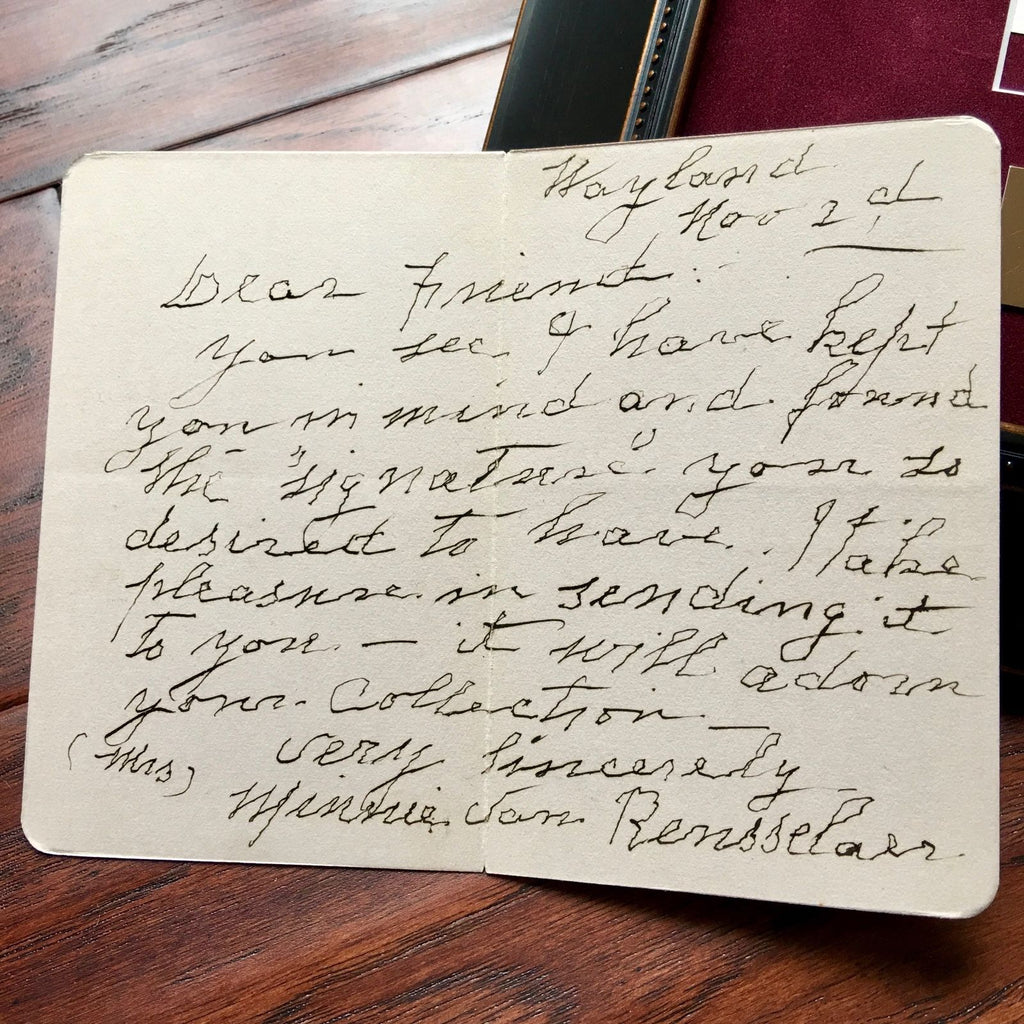 Wayland
Nov 2d
Dear Friend:
You see I have kept
you in mind and found
the "signature" you so
desired to have. I take
pleasure in sending it
to you — it will adorn
your Collection —
Very Sincerely
(Mrs) Minnie Van Rensselaer